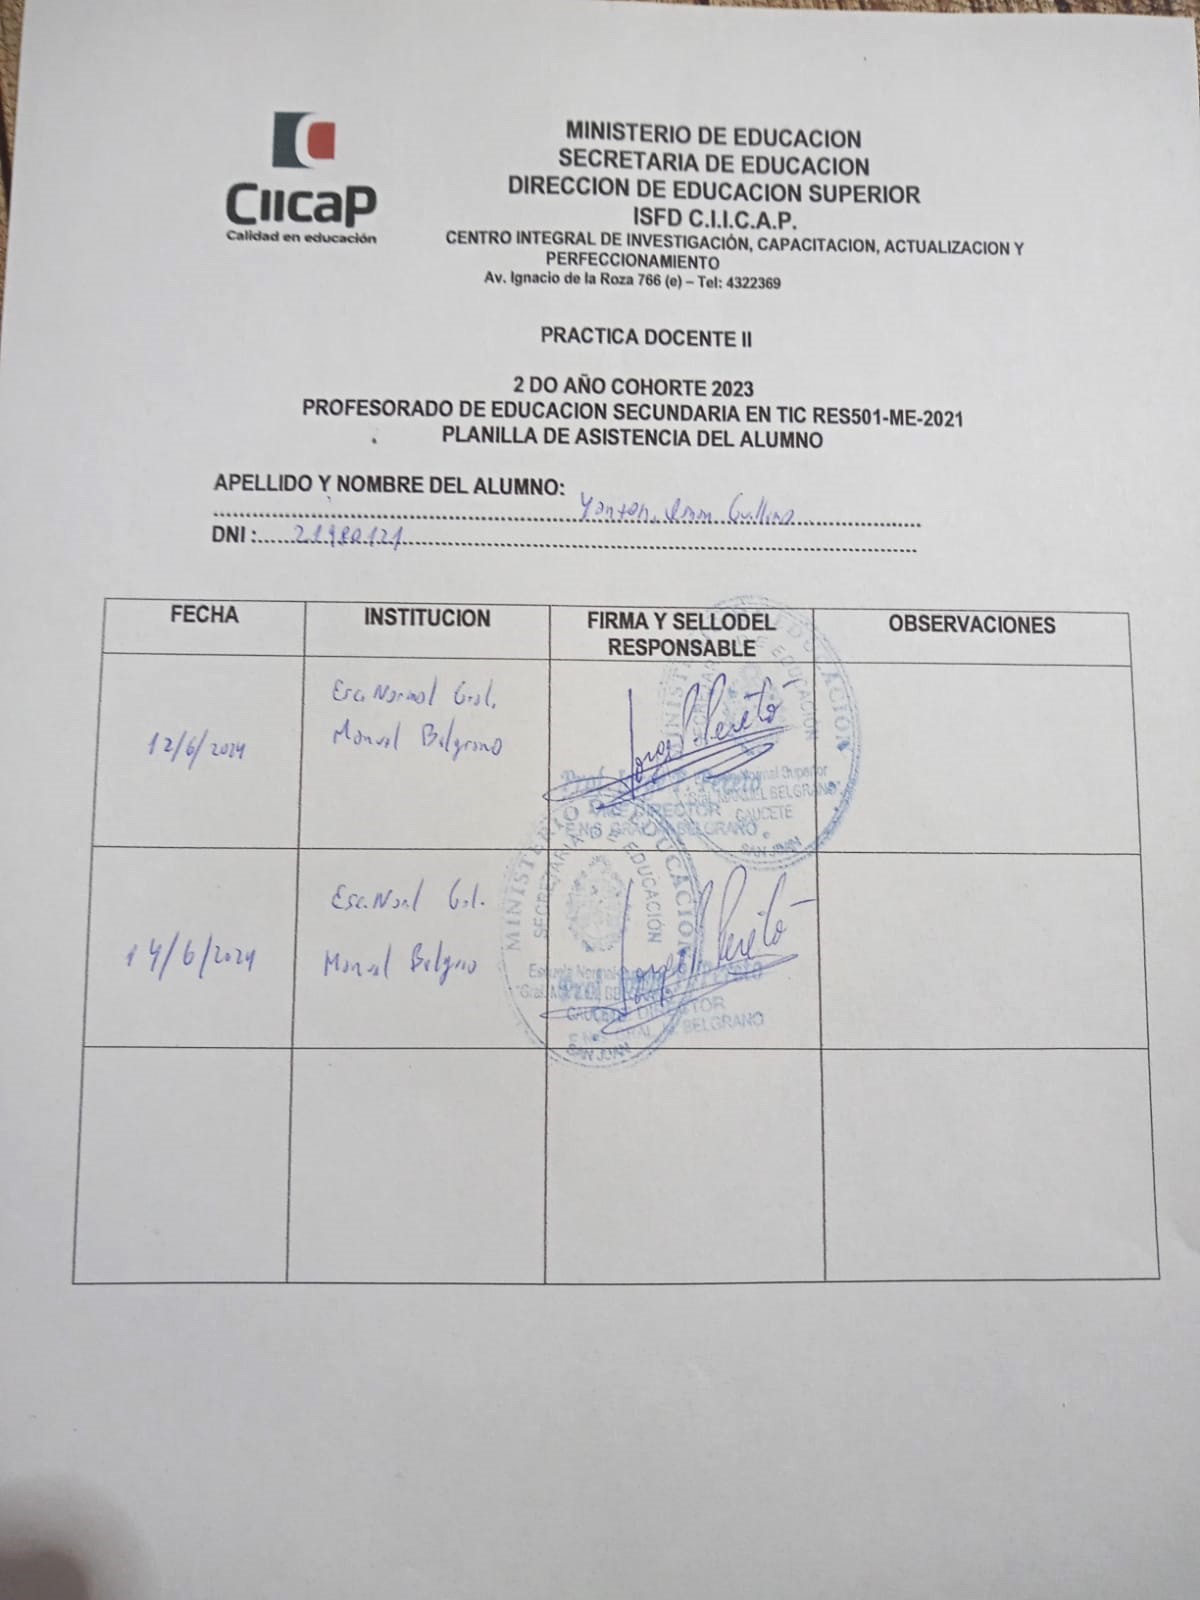 CIICAP
Calidad en educación
MINISTERIO DE EDUCACION
SECRETARIA DE EDUCACION
DIRECCION DE EDUCACION SUPERIOR
ISFD C.I.I.C.A.P.
CENTRO INTEGRAL DE INVESTIGACIÓN, CAPACITACION, ACTUALIZACION Y
PERFECCIONAMIENTO
Av. Ignacio de la Roza 766 (e) – Tel: 4322369
PRACTICA DOCENTE II
2 DO AÑO COHORTE 2023
PROFESORADO DE EDUCACION SECUNDARIA EN TIC RES501-ME-2021
PLANILLA DE ASISTENCIA DEL ALUMNO
APELLIDO Y NOMBRE DEL ALUMNO:
DNI :
FECHA INSTITUCION FIRMA Y SELLODEL RESPONSABLE OBSERVACIONES
12/6/2024
Esc. Normal Gral.
Manuel Belgrano
MINISTERIO DE EDUCACION
SECRETARIA DE EDUCACIÓN
Normal Superior
BELGRANO
CAUCETE
SAN JUAN
14/6/2024
Manuel Belgrano
MINISTERIO DE EDUCACION
SECRETARIA DE EDUCACIÓN
CAUCETE
DIRECTOR
BELGRANO
SAN JUAN